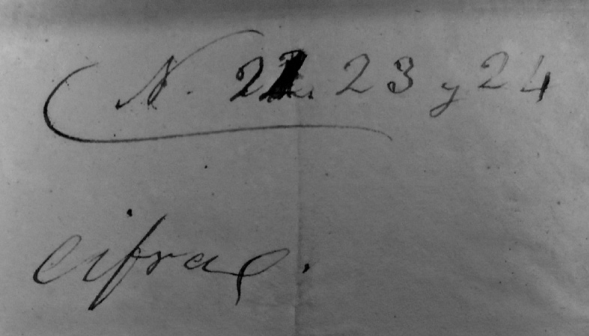 N. 22. 23 y 24
cifra.